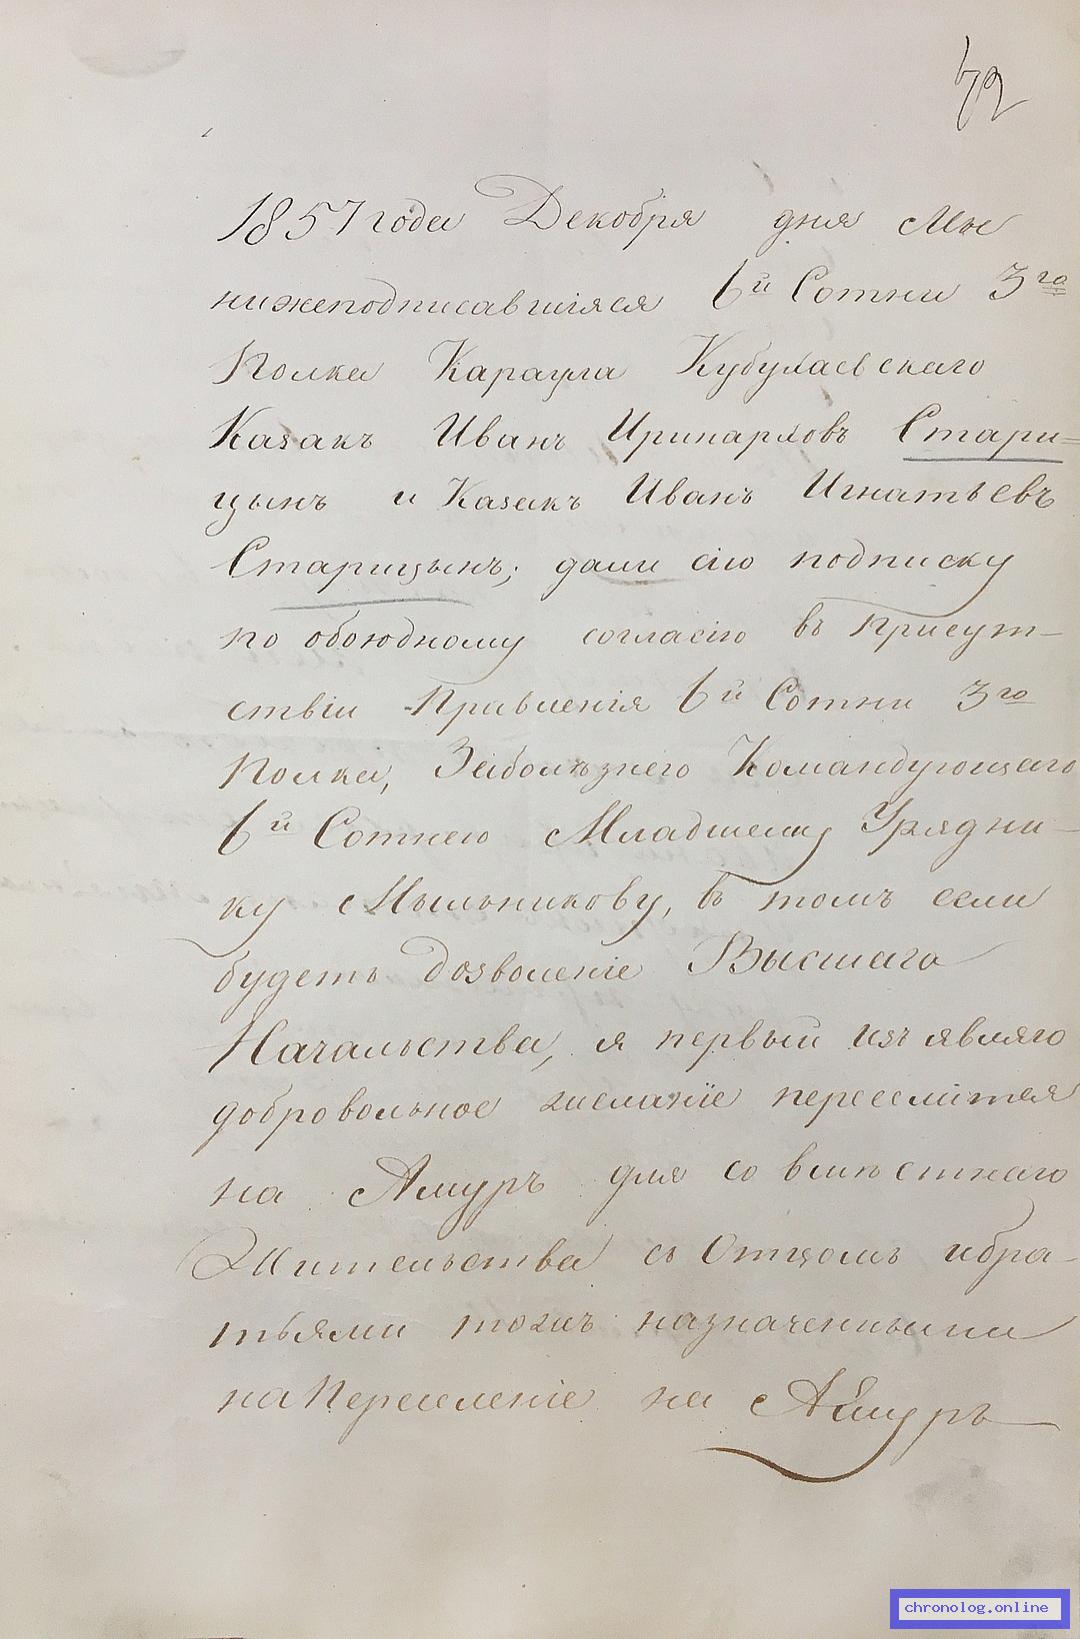 72
1857 года Декабря дня Мы
нижеподписавшіяся 6й Сотни 3го
Полка Караула Кубулаевскаго
Казакъ Иванъ Иринарховъ Стари=
цынъ и Казакъ Иванъ Игнатьевъ
Старицынъ; дали сію подписку
по обоюдному согласію въ присут-
ствіи Правленія 6й Сотни 3го
Полка, Заболѣзнего Командующаго
6й Сотнею Младшему Урядни-
ку Мыльникову, въ томъ если
будетъ дозволеніе Высшаго
Начальства, я первый изъявляю
добровольное желаніе переселится
на Амуръ для совмѣстнаго
Жительства съ Отцомъ и бра-
тьями тожъ назначенными
на Переселеніе на Амуръ
chronolog.online